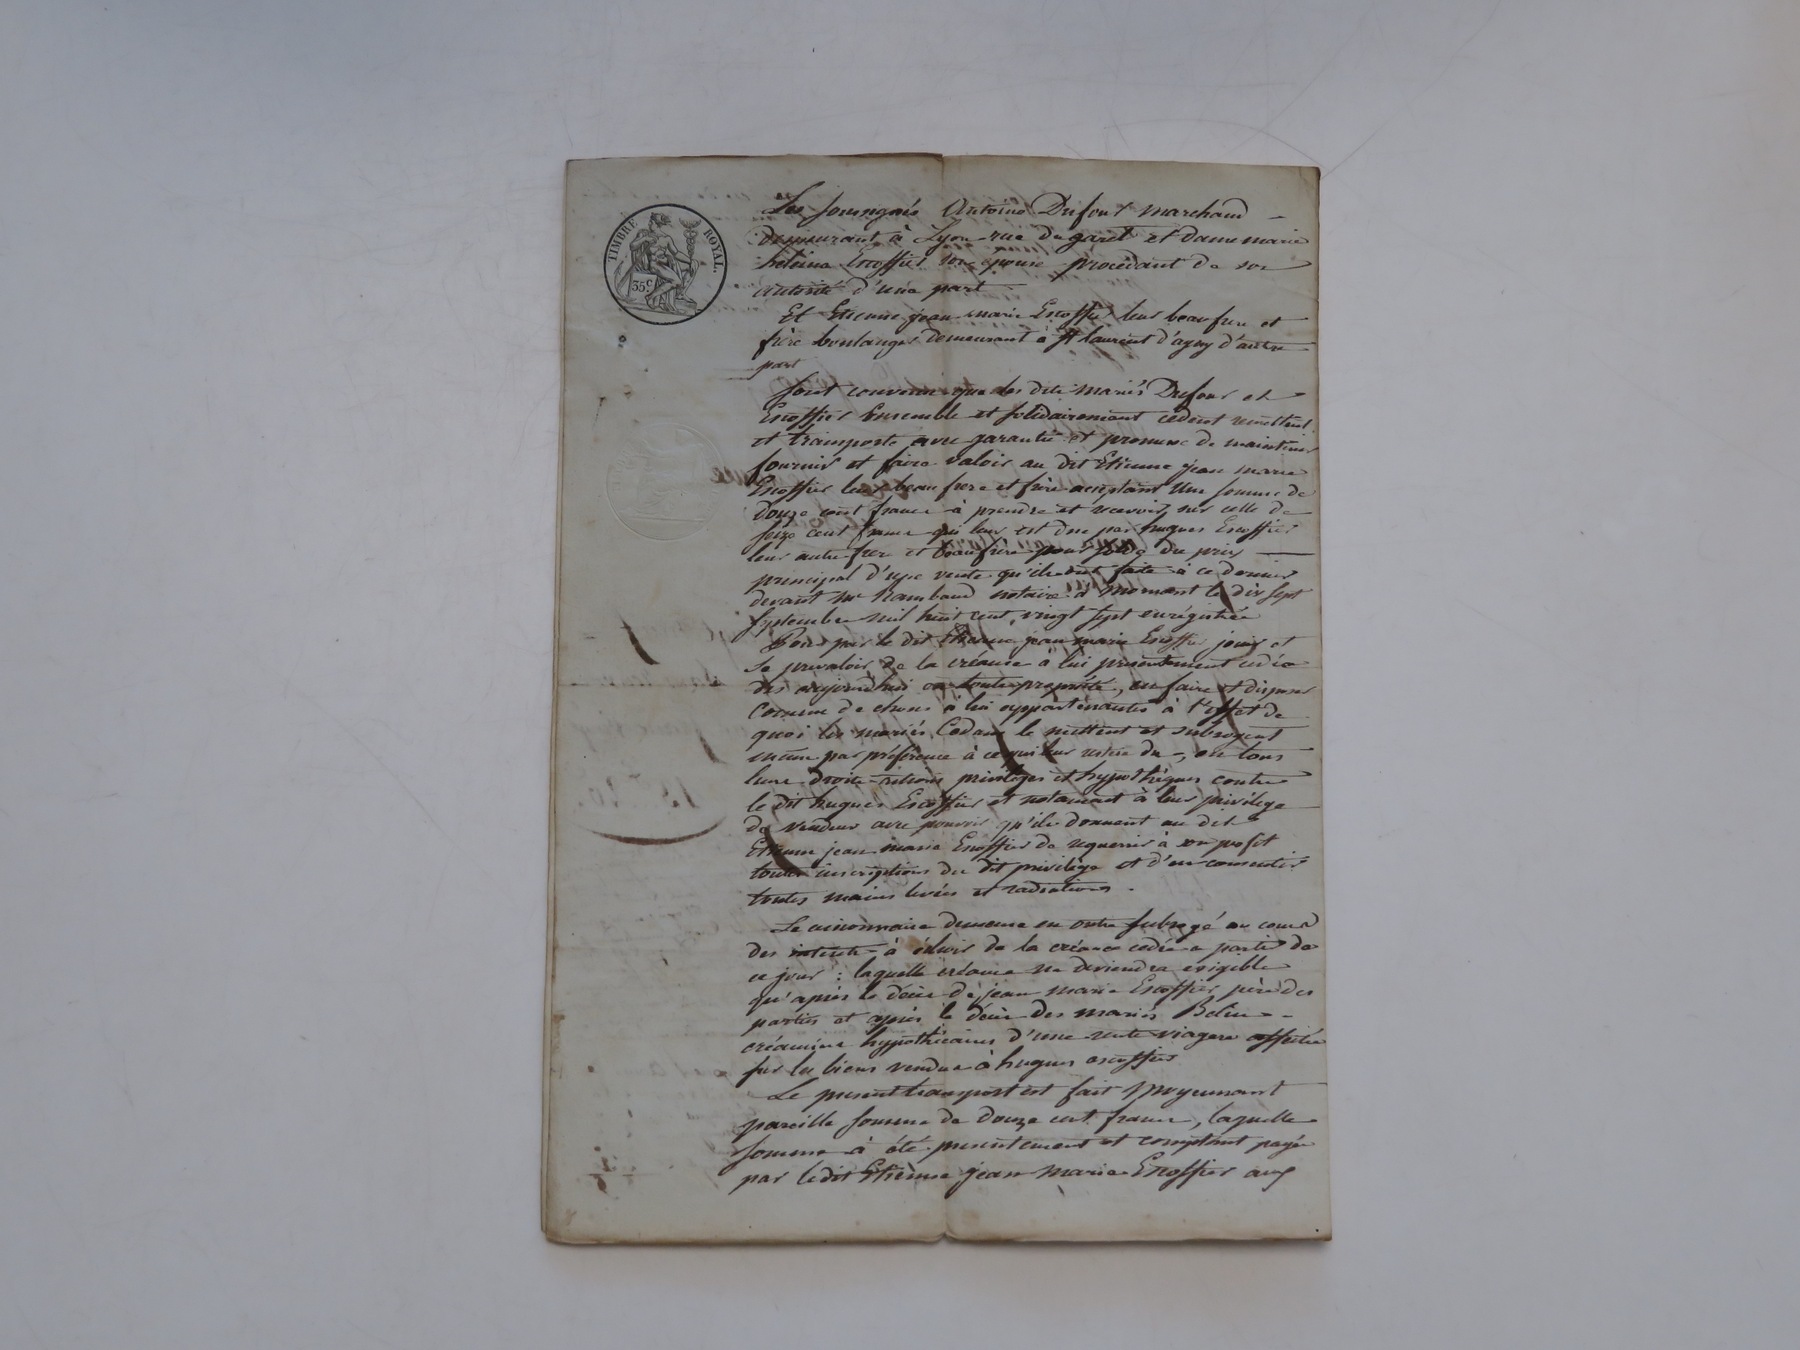 TIMBRE ROYAL.
35 c.
Les sousignés Antoine Dufour marchand
demeurant à Lyon rue du garet et dame marie
heleina Escoffier son épouse procédant de son
autorité d'une part
Et Etienne jean marie Escoffier leur beaufrere et
frère boulanger demeurant à St laurent d'agny d'autre
part
Sont convenus que les dits mariés Dufour et
Escoffier Ensemble et solidairement cedent remettent
et transporte avec garantie et promesse de maintenir
fournir et faire valoir au dit Etienne jean marie
Escoffier leur beau frere et frère acceptant Une somme de
douze cent francs à prendre et recevoir sur celle de
seize cent francs qui leur est due par hugues Escoffier
leur autre frere et beaufrere pour solde du prix
principal d'une vente qu'ils ont faite à ce dernier
devant me Rambaud notaire à mornant le dix sept
septembre mil huit cent vingt sept enrégistrée
Pour par le dit Etienne jean marie Escoffier jouir et
se prevaloir de la créance à lui presentement cedée
dès aujourdhui en toute propriété, en faire et disposer
comme de choses à lui appartenantes à l'effet de
quoi les mariés Cedans le mettent et subrogent
même par préférence à ce qui leur reste du, en tous
leurs droits actions privilèges et hypothèques contre
le dit hugues Escoffier et notament à leur privilege
de vendeur avec pouvoir qu'ils donnent au dit
Etienne jean marie Escoffier de requerir à son profit
toutes inscriptions du dit privilège et d'en consentir
toutes mains levées et radiations.
Le cessionnaire demeure en outre subrogé au cours
des interets à échoir de la créance cedée a partir de
ce jour : laquelle créance ne deviendra exigible
qu'après le décès de jean marie Escoffier père des
parties et après le décès des mariés
créanciers hypothécaires d'une rente viagere affectée
sur les biens vendus à hugues escoffier
Le present transport est fait Moyennant
pareille somme de douze cent francs, laquelle
somme à été presentement et comptant payée
par le dit Etienne jean Marie Escoffier aux